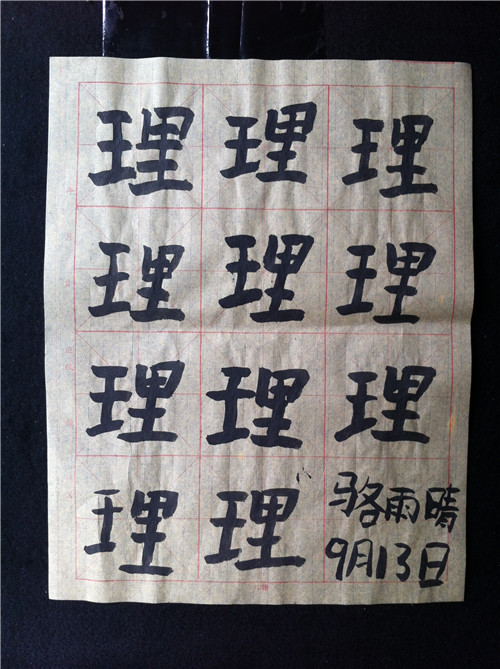 理理理
理理理
理理理
理理骆雨晴
9月13日